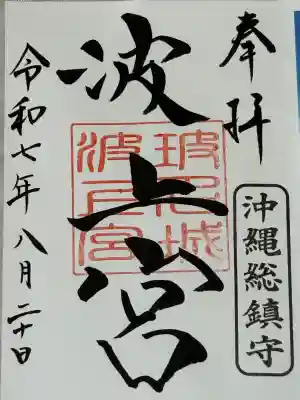 奉拝
沖縄総鎮守
波上宮
波上宮
令和七年八月二十日